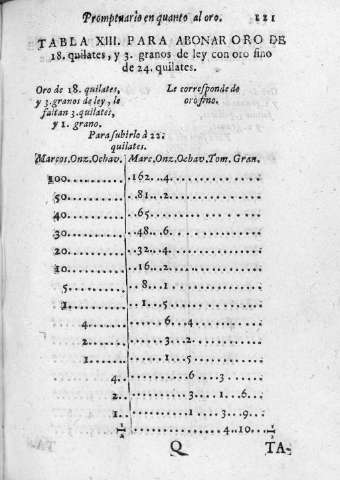 Promptuario en quanto al oro. 121
TABLA XIII. PARA ABONAR ORO DE
18. quilates, y 3. granos de ley con oro fino
de 24. quilates.
Oro de 18. quilates,
y 3. granos de ley, le
faltan 3. quilates,
y 1. grano.
Le corresponde de
oro fino.
Para subirle à 22.
quilates.
Marcos. Onz. Ochav. Marc. Onz. Ochav. Tom. Gran.
100. . . . . . . . . . 162. . 4. . . . . . . . . . .
50. . . . . . . . . . . 81. . 2. . . . . . . . . . .
40. . . . . . . . . . . 65. . . . . . . . . . . . .
30. . . . . . . . . . . 48. . 6. . . . . . . . . . .
20. . . . . . . . . . . 32. . 4. . . . . . . . . . .
10. . . . . . . . . . . 16. . 2. . . . . . . . . . .
5. . . . . . . . . . . 8. . . 1. . . . . . . . . . .
1. . . . . . . . . . . 1. . . 5. . . . . . . . . . .
4. . . . . . . . . . 6. . . 4. . . . . . . .
2. . . . . . . . . . 3. . . 2. . . . . . . .
1. . . . . . . . . . 1. . . 5. . . . . . . .
4. . . . . . . . . . 6. . . 3. . . . . .
2. . . . . . . . . . 3. . . 1. . . 6. . .
1. . . . . . . . . . 1. . . 3. . . 9. . .
1/2 . . . . . . . . . . 4. . 10. . . 1/2
Q TA-